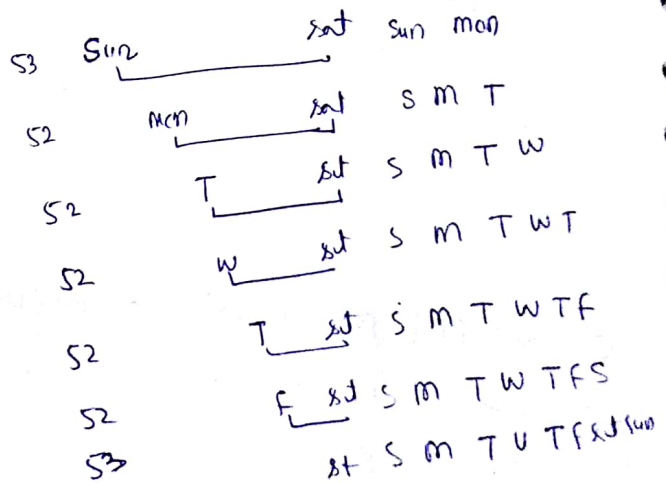 53 Sun sat Sun mon
52 mon sat S m T
52 T sat S m T W
52 W sat S m T W T
52 T sat S m T W T F
52 F sat S m T W T F S
53 st S m T U T F sat sun